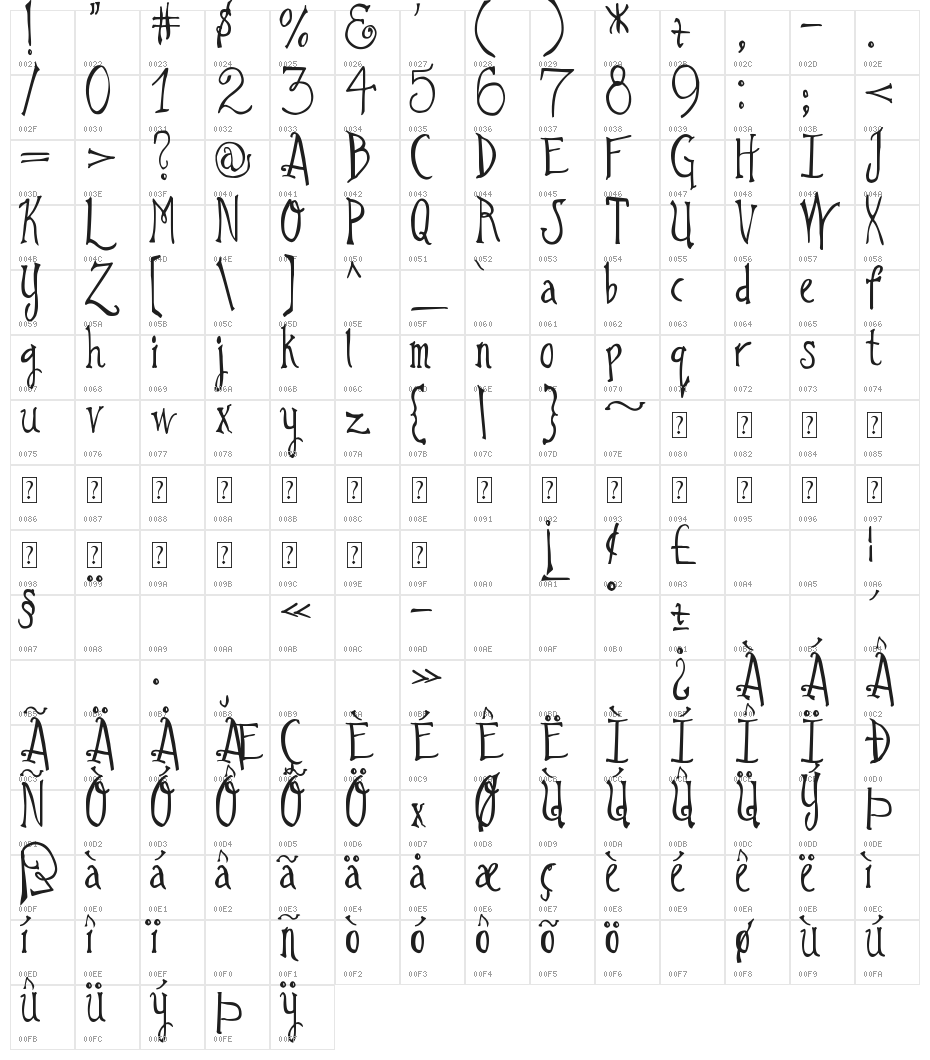 ! " # $ % & ' ( ) * + , - .
0021 0022 0023 0024 0025 0026 0027 0028 0029 002A 002B 002C 002D 002E
/ 0 1 2 3 4 5 6 7 8 9 : ; <
002F 0030 0031 0032 0033 0034 0035 0036 0037 0038 0039 003A 003B 003C
= > ? @ A B C D E F G H I J
003D 003E 003F 0040 0041 0042 0043 0044 0045 0046 0047 0048 0049 004A
K L M N O P Q R S T U V W X
004B 004C 004D 004E 004F 0050 0051 0052 0053 0054 0055 0056 0057 0058
Y Z [ \ ] ^ _ ` a b c d e f
0059 005A 005B 005C 005D 005E 005F 0060 0061 0062 0063 0064 0065 0066
g h i j k l m n o p q r s t
0067 0068 0069 006A 006B 006C 006D 006E 006F 0070 0071 0072 0073 0074
u v w x y z { | } ~ ? ? ? ?
0075 0076 0077 0078 0079 007A 007B 007C 007D 007E 0080 0082 0084 0085
? ? ? ? ? ? ? ? ? ? ? ? ? ?
0086 0087 0088 008A 008B 008C 008E 0091 0092 0093 0094 0095 0096 0097
? ? ? ? ? ? ? ¡ ¢ £ ¦
0098 0099 009A 009B 009C 009E 009F 00A0 00A1 00A2 00A3 00A4 00A5 00A6
§ ¨ « - ° ± ´
00A7 00A8 00A9 00AA 00AB 00AC 00AD 00AE 00AF 00B0 00B1 00B2 00B3 00B4
· ¸ » ¿ À Á Â
00B5 00B6 00B7 00B8 00B9 00BA 00BB 00BC 00BD 00BE 00BF 00C0 00C1 00C2
Ã Ä Å Æ Ç È É Ê Ë Ì Í Î Ï Ð
00C3 00C4 00C5 00C6 00C7 00C8 00C9 00CA 00CB 00CC 00CD 00CE 00CF 00D0
Ñ Ò Ó Ô Õ Ö × Ø Ù Ú Û Ü Ý Þ
00D1 00D2 00D3 00D4 00D5 00D6 00D7 00D8 00D9 00DA 00DB 00DC 00DD 00DE
ß à á â ã ä å æ ç è é ê ë ì
00DF 00E0 00E1 00E2 00E3 00E4 00E5 00E6 00E7 00E8 00E9 00EA 00EB 00EC
í î ï ñ ò ó ô õ ö ø ù ú
00ED 00EE 00EF 00F0 00F1 00F2 00F3 00F4 00F5 00F6 00F7 00F8 00F9 00FA
û ü ý þ ÿ
00FB 00FC 00FD 00FE 00FF